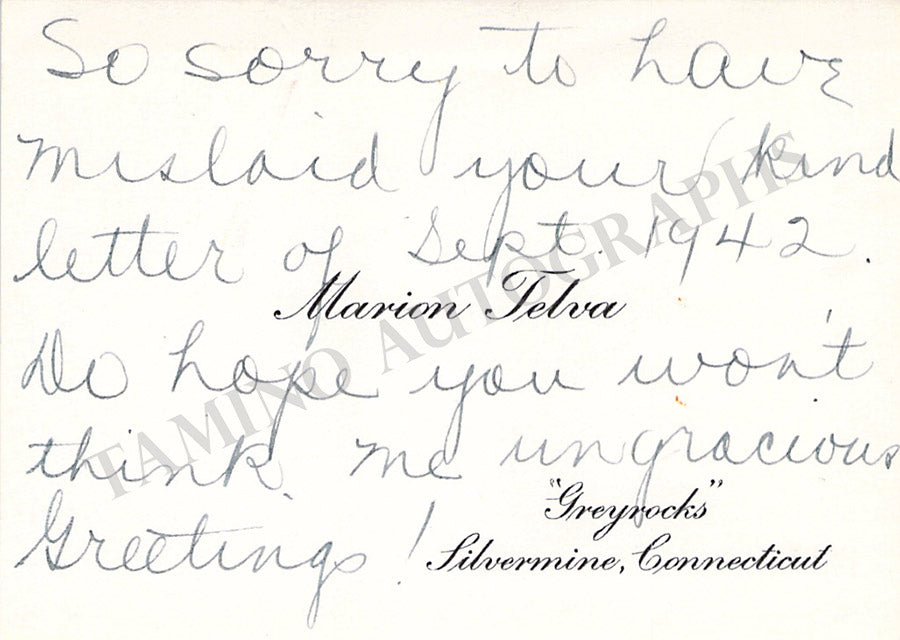 So sorry to have
mislaid your kind
letter of Sept. 1942.
Marion Telva
Do hope you won't
think me ungracious
"Greyrocks"
Greetings!
Silvermine, Connecticut
TAMINO AUTOGRAPHS